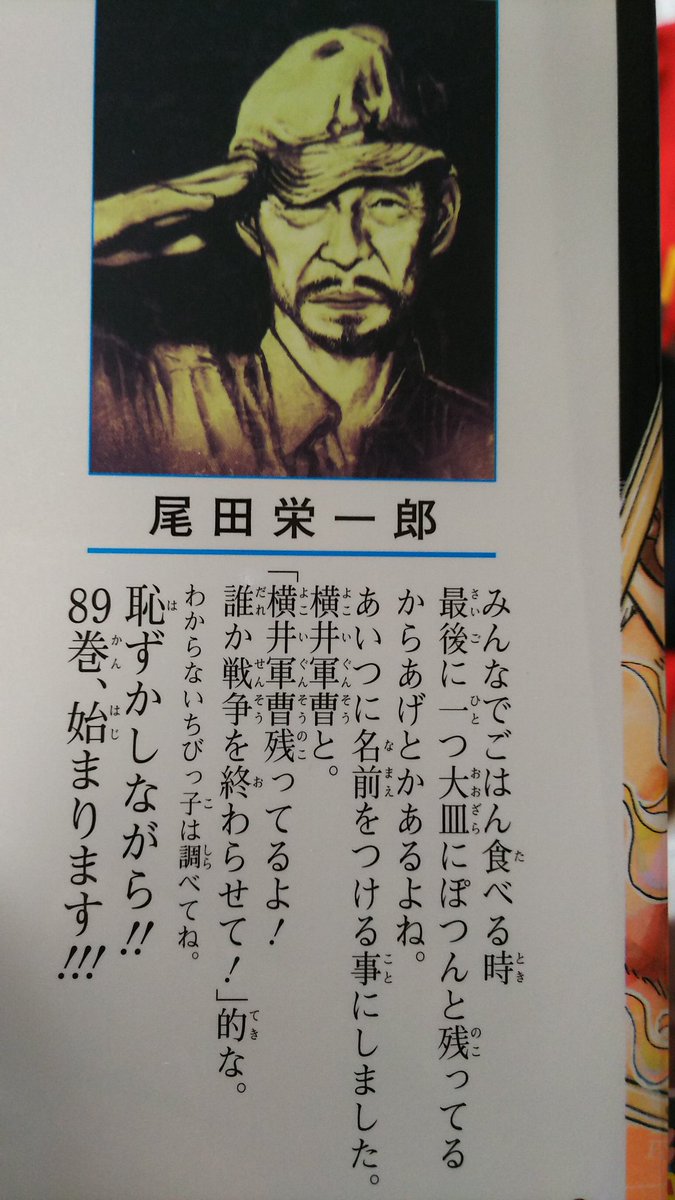 尾田栄一郎
みんなでごはん食べる時
最後に一つ大皿にぽつんと残ってる
からあげとかあるよね。
あいつに名前をつける事にしました。
横井軍曹と。
「横井軍曹残ってるよ!
誰か戦争を終わらせて!」的な。
わからないちびっ子は調べてね。
恥ずかしながら!!
89巻、始まります!!!